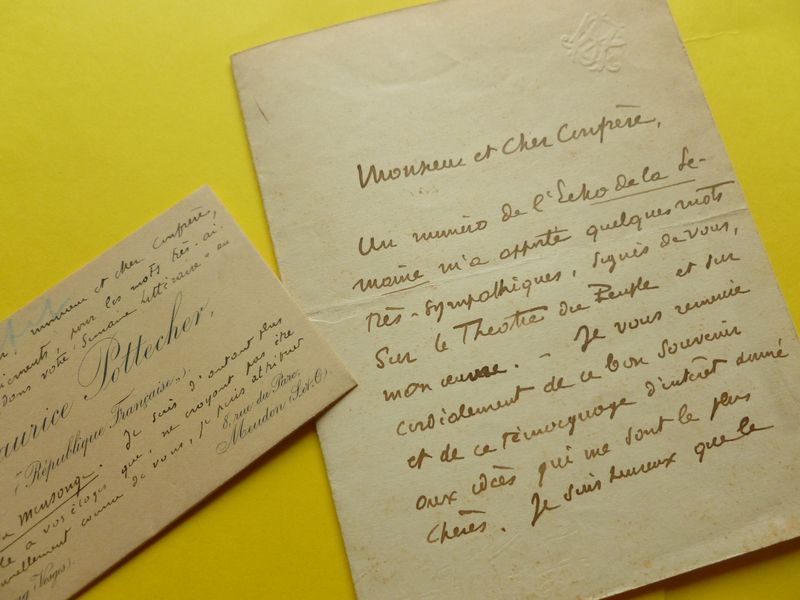 Monsieur et Cher Confrère,
Un numéro de l'Echo de la Se-
maine m'a apporté quelques mots
très-sympathiques, signés de vous,
sur le Théâtre du Peuple et sur
mon œuvre. - Je vous remercie
cordialement de ce bon souvenir
et de ce témoignage d'intérêt donné
aux idées qui me sont le plus
chères. Je suis heureux que le
monsieur et cher confrère,
pour les mots très-ai-
dans votre "Semaine littéraire" au
aurice Pottecher,
("République Française").
8, rue du Parc,
Meudon (S.-et-O.)
mensonge. Je suis d'autant plus
à vos éloges que, ne croyant pas être
connu de vous, je puis attribuer
(Vosges).